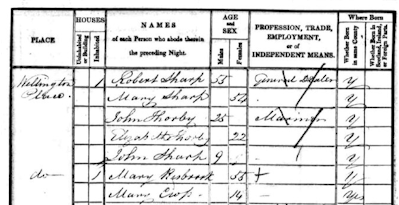 PLACE HOUSES NAMES of each Person who abode therein the preceding Night. AGE and SEX PROFESSION, TRADE, EMPLOYMENT, or of INDEPENDENT MEANS. Where Born
Uninhabited or Building Inhabited Males Females Whether Born in same County Whether Born in Scotland, Ireland, or Foreign Parts.
Wellington Place 1 Robert Sharp 55 General Dealer Y
Mary Sharp 54 Y
John Thorby 25 Mariner Y
Elizth Thorby 22 Y
John Sharp 9 Y
do 1 Mary 55 Y
Mary 14 Yes